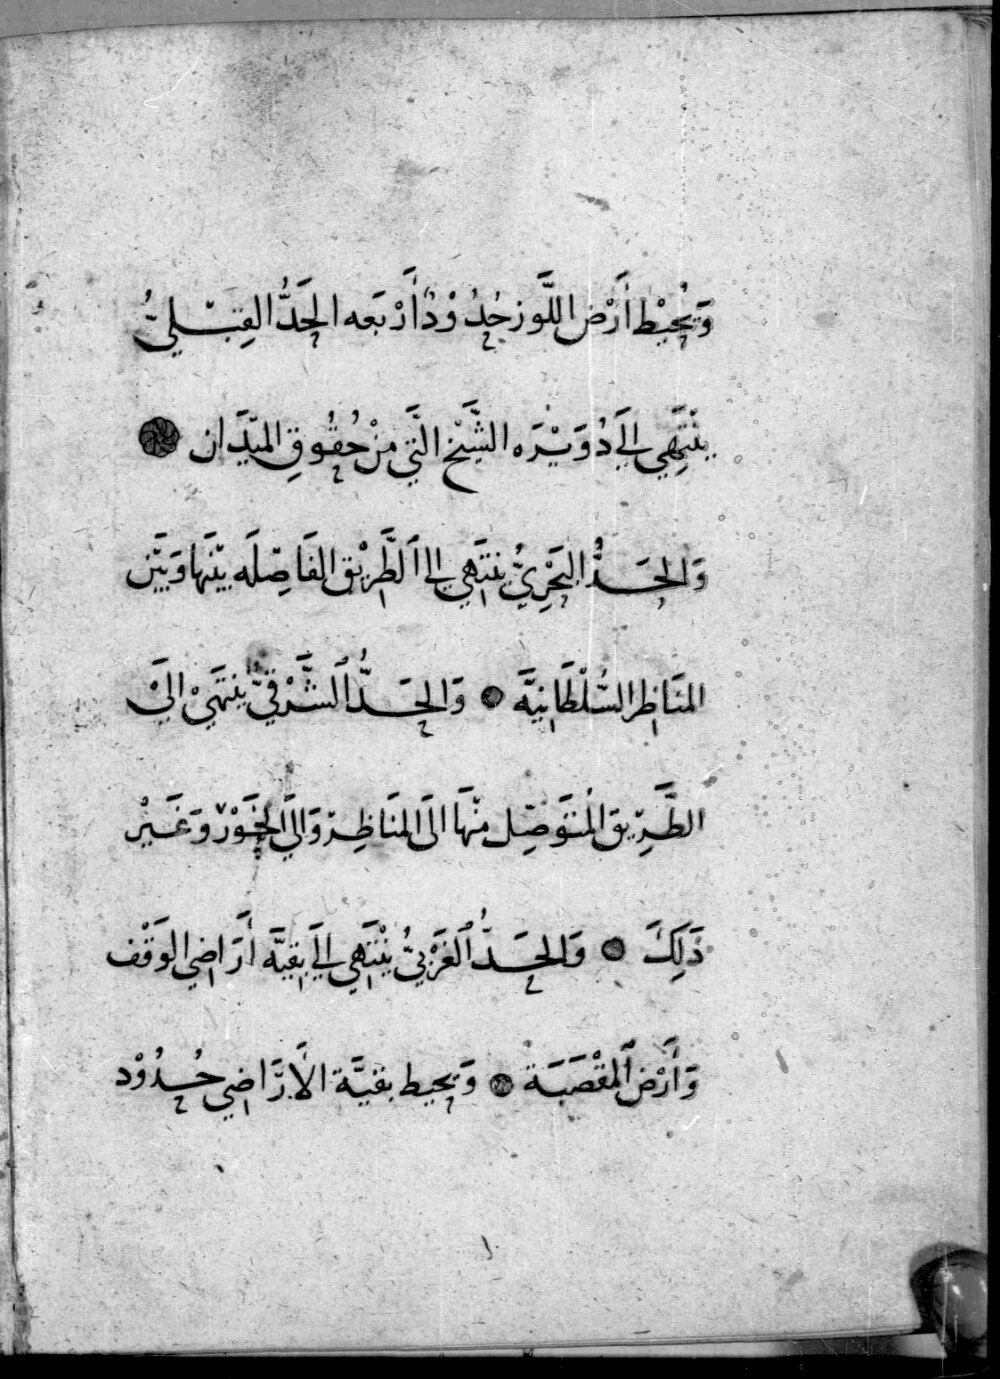 وَيُحِيْط أَرْض اللَّوز حُدُوْدُ أَرْبَعه الحَدُّ القِبْلِيُّ
يَنْتَهِي إِلَى دُوَيْرَه الشَّيْخ الَّتِي مِنْ حُقُوقِ المَيْدَان
وَالحَدُّ البَحْرِيُّ يَنْتَهِي إِلى الطَّرِيْق الفَاصِلَه بَيْنَهَا وَبَيْن
المَنَاظِر السُّلْطَانِيَّه وَالحَدُّ الشَّرْقِيُّ يَنْتَهِيْ إِلَيْ
الطَّرِيق المُتَوَصِّل مِنْهَا الَى المَنَاظِرِ وَالَى الخَوْرِ وَغَيْرْ
ذَلِكَ وَالحَدُّ الغَرْبِيُّ يَنْتَهِي إِلَى بَقِيَّه أَرَاضِي الوَقْف
وَأَرْض المَقْصَبَة وَيحيط بقيَّة الأَرَاضِي حُدُوْد